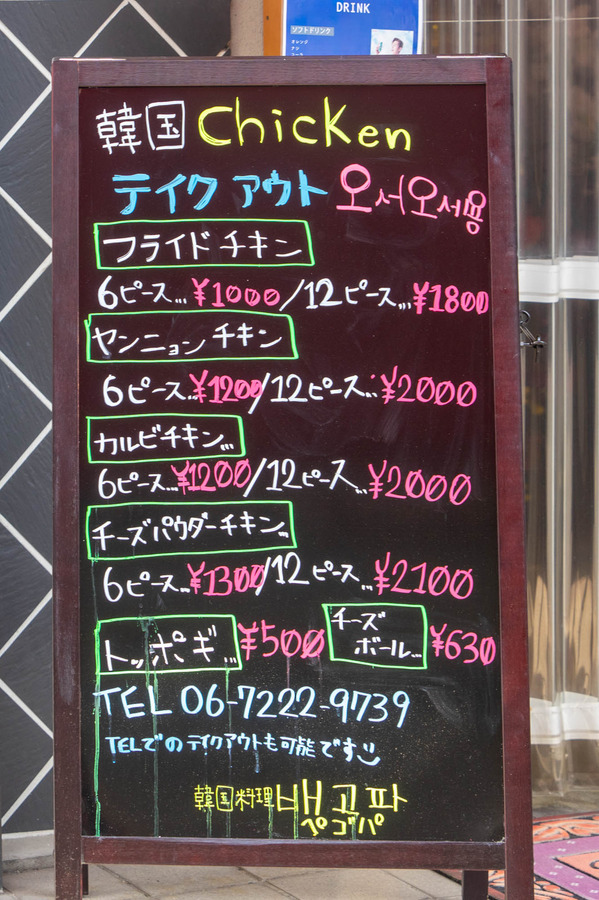 DRINK
ソフトドリンク
オレンジ
韓国 Chicken
テイクアウト 오서오서용
フライドチキン
6ピース...¥1000/12ピース...¥1800
ヤンニョンチキン
6ピース...¥1200/12ピース...¥2000
カルビチキン...
6ピース...¥1200/12ピース...¥2000
チーズパウダーチキン...
6ピース...¥1300/12ピース...¥2100
トッポギ...¥500 チーズボール...¥630
TEL 06-7222-9739
TELでのテイクアウトも可能です
韓国料理 배고파
ペゴパ